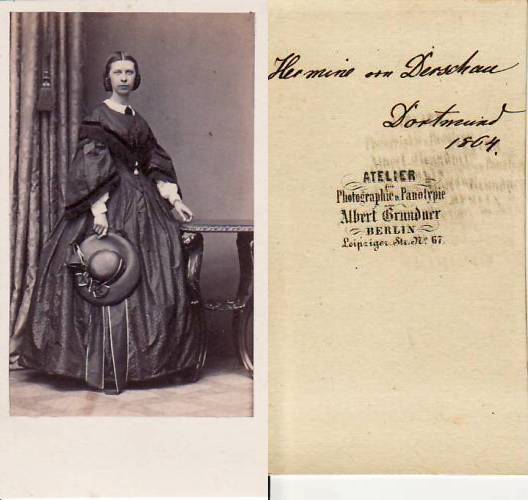 Hermine von Derschau
Dortmund
1864.
ATELIER
für
Photographie u. Panotypie
von
Albert Grundner
BERLIN
Leipziger-Str. No 67.